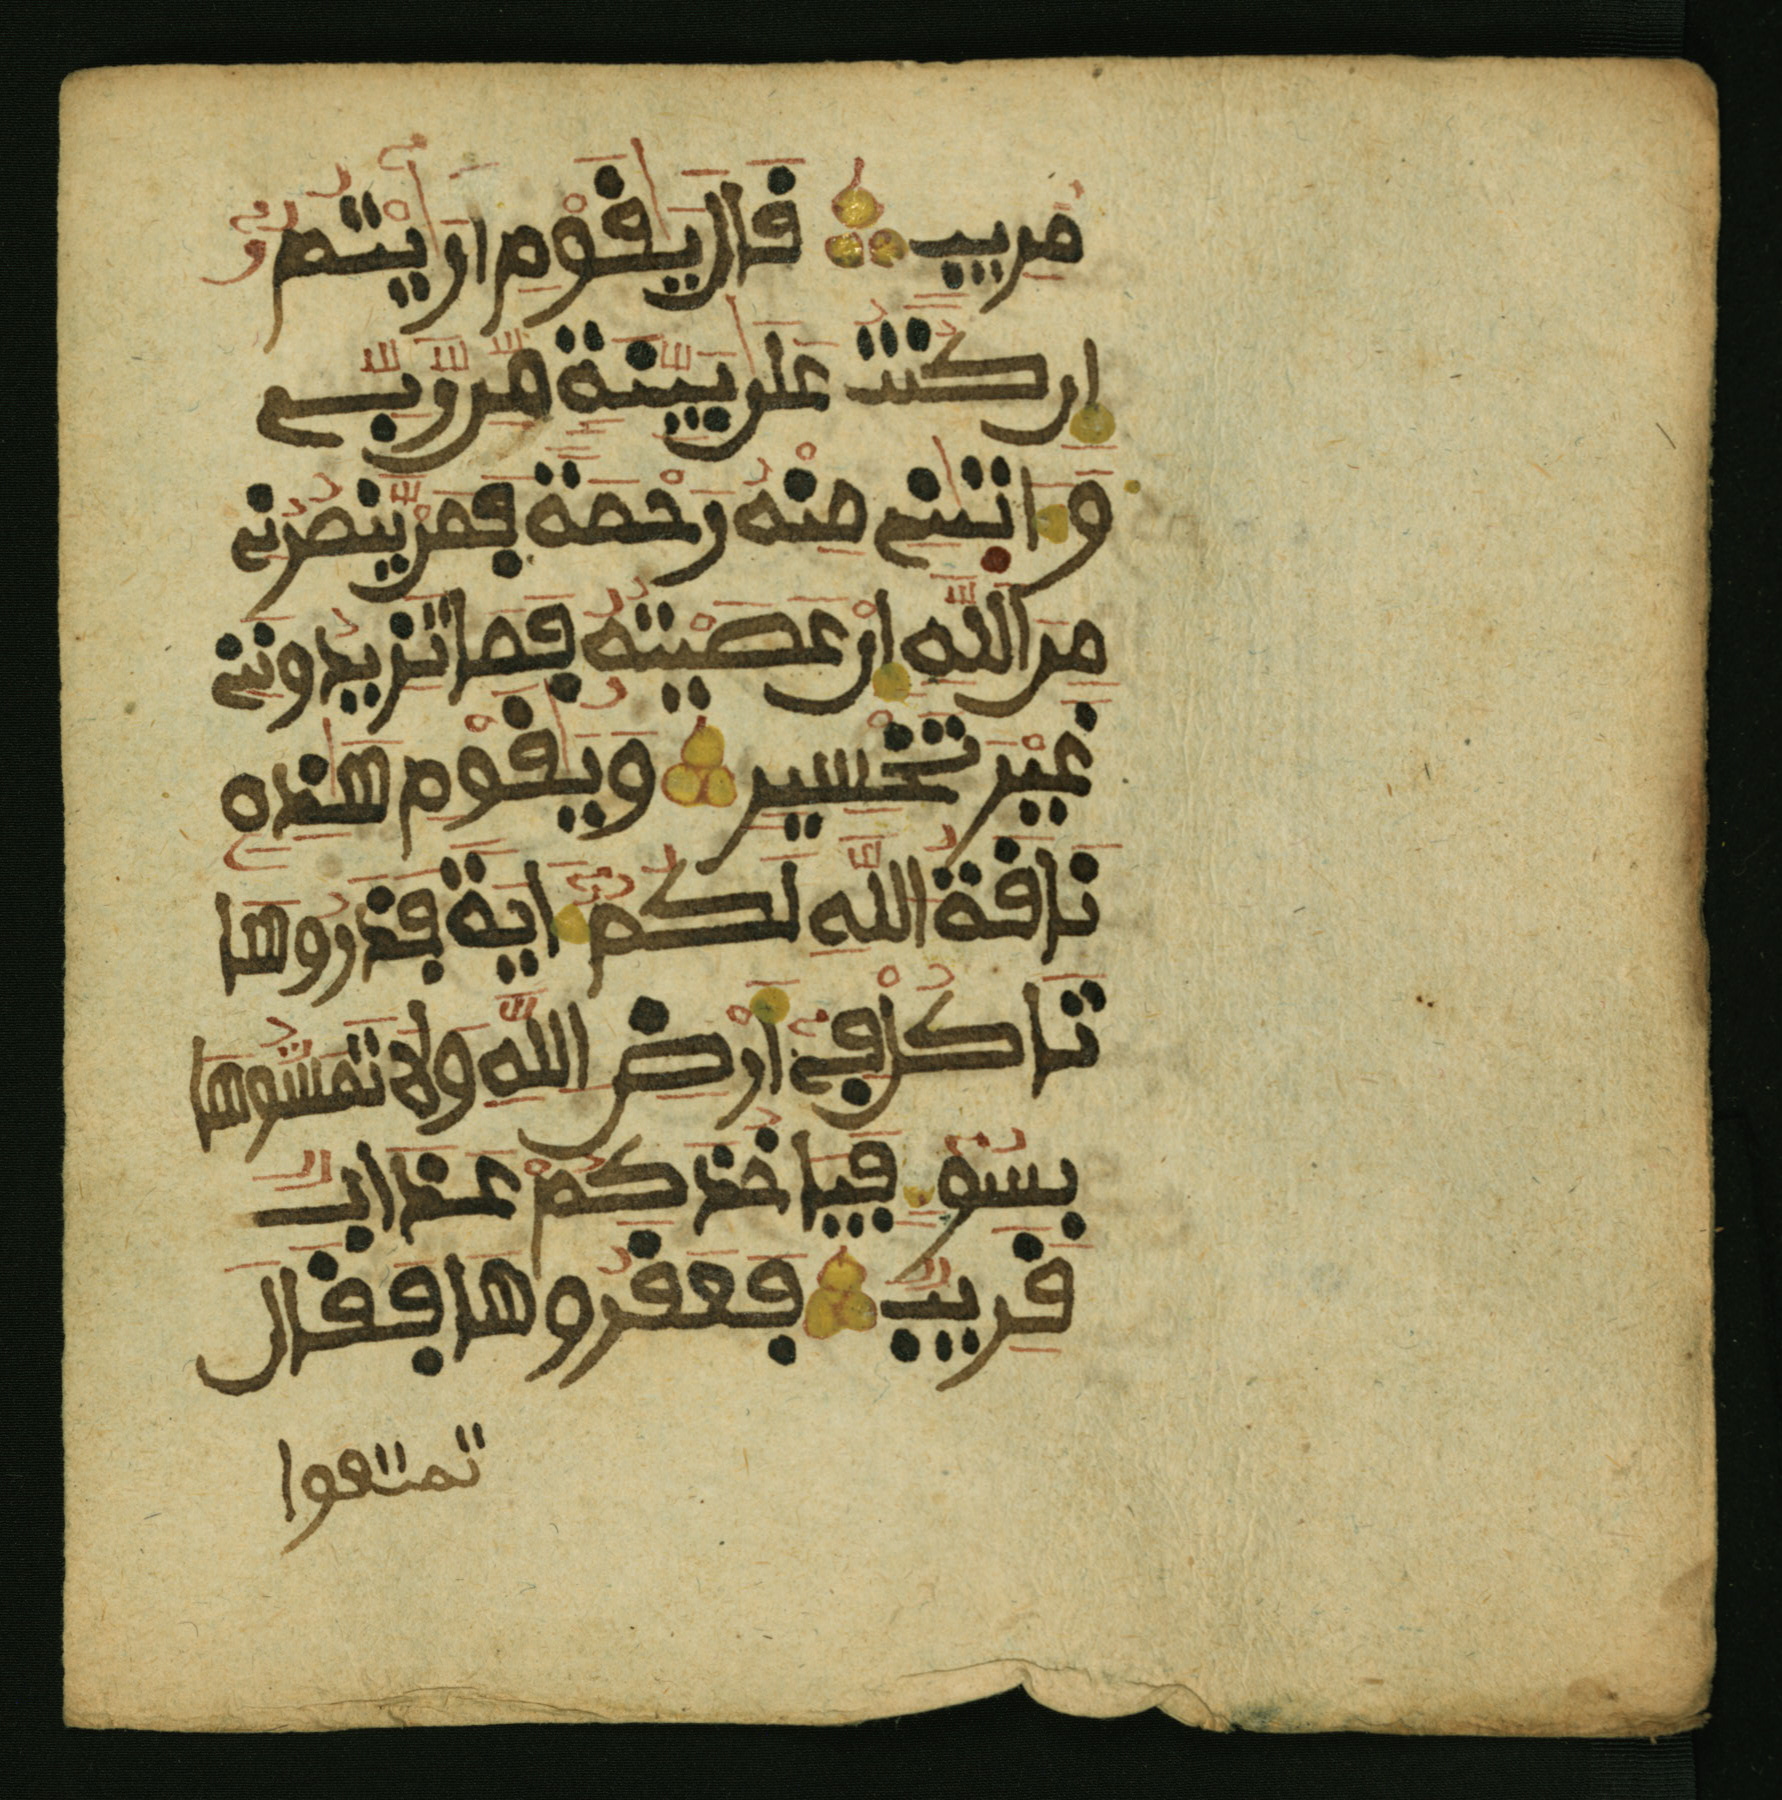 مُرِيبٍ قَالَ يَٰقَوْمِ أَرَٰيْتُمُۥٓ
إِن كُنتُ عَلَىٰ بَيِّنَةٍ مِّن رَّبِّے
وَءَاتَىٰنِے مِنْهُ رَحْمَةً فَمَنْ يَّنصُرُنِے
مِنَ اَللَّهِ إِنْ عَصَيْتُهُۥ فَمَا تَزِيدُونَنِے
غَيْرَ تَخْسِيرٍ وَيَٰقَوْمِ هَٰذِهِۦ
نَاقَةُ اُللَّهِ لَكُمُۥٓ ءَايَةً فَذَرُوهَا
تَاكُلْ فِےٓ أَرْضِ اِللَّهِ وَلَا تَمَسُّوهَا
بِسُوٓءٍ فَيَاخُذَكُمْ عَذَابٌ
قَرِيبٌ فَعَقَرُوهَا فَقَالَ
تمتعوا